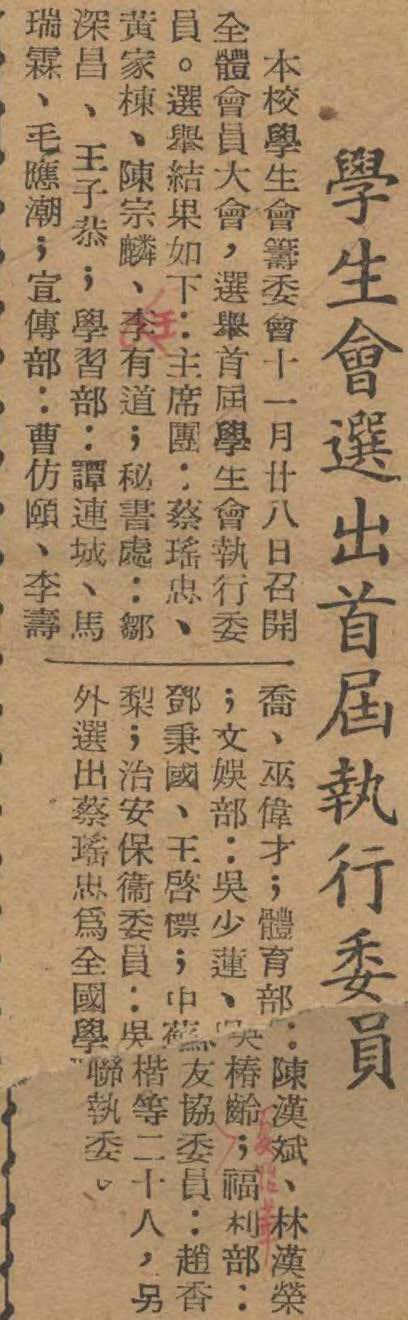 學生會選出首屆執行委員
本校學生會籌委會十一月廿八日召開
全體會員大會，選舉首屆學生會執行委
員。選舉結果如下：主席團：蔡瑤忠、
黃家棟、陳宗麟、李有道；秘書處：鄒
深昌、王子恭；學習部：譚連城、馬
瑞霖、毛應潮；宣傳部：曹仿頤、李壽
喬、巫偉才；體育部：陳漢斌、林漢榮
；文娛部：吳少蓮、吳椿齡；福利部：
鄧秉國、王啓標；中蘇友協委員：趙香
梨；治安保衞委員：吳楷等二十人，另
外選出蔡瑤忠爲全國學聯執委。